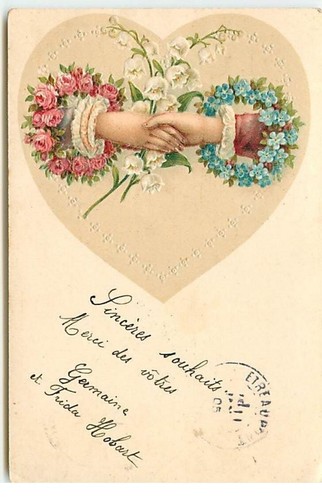 Sincères souhaits.
Merci des vôtres
Germaine
et Frida Hobart